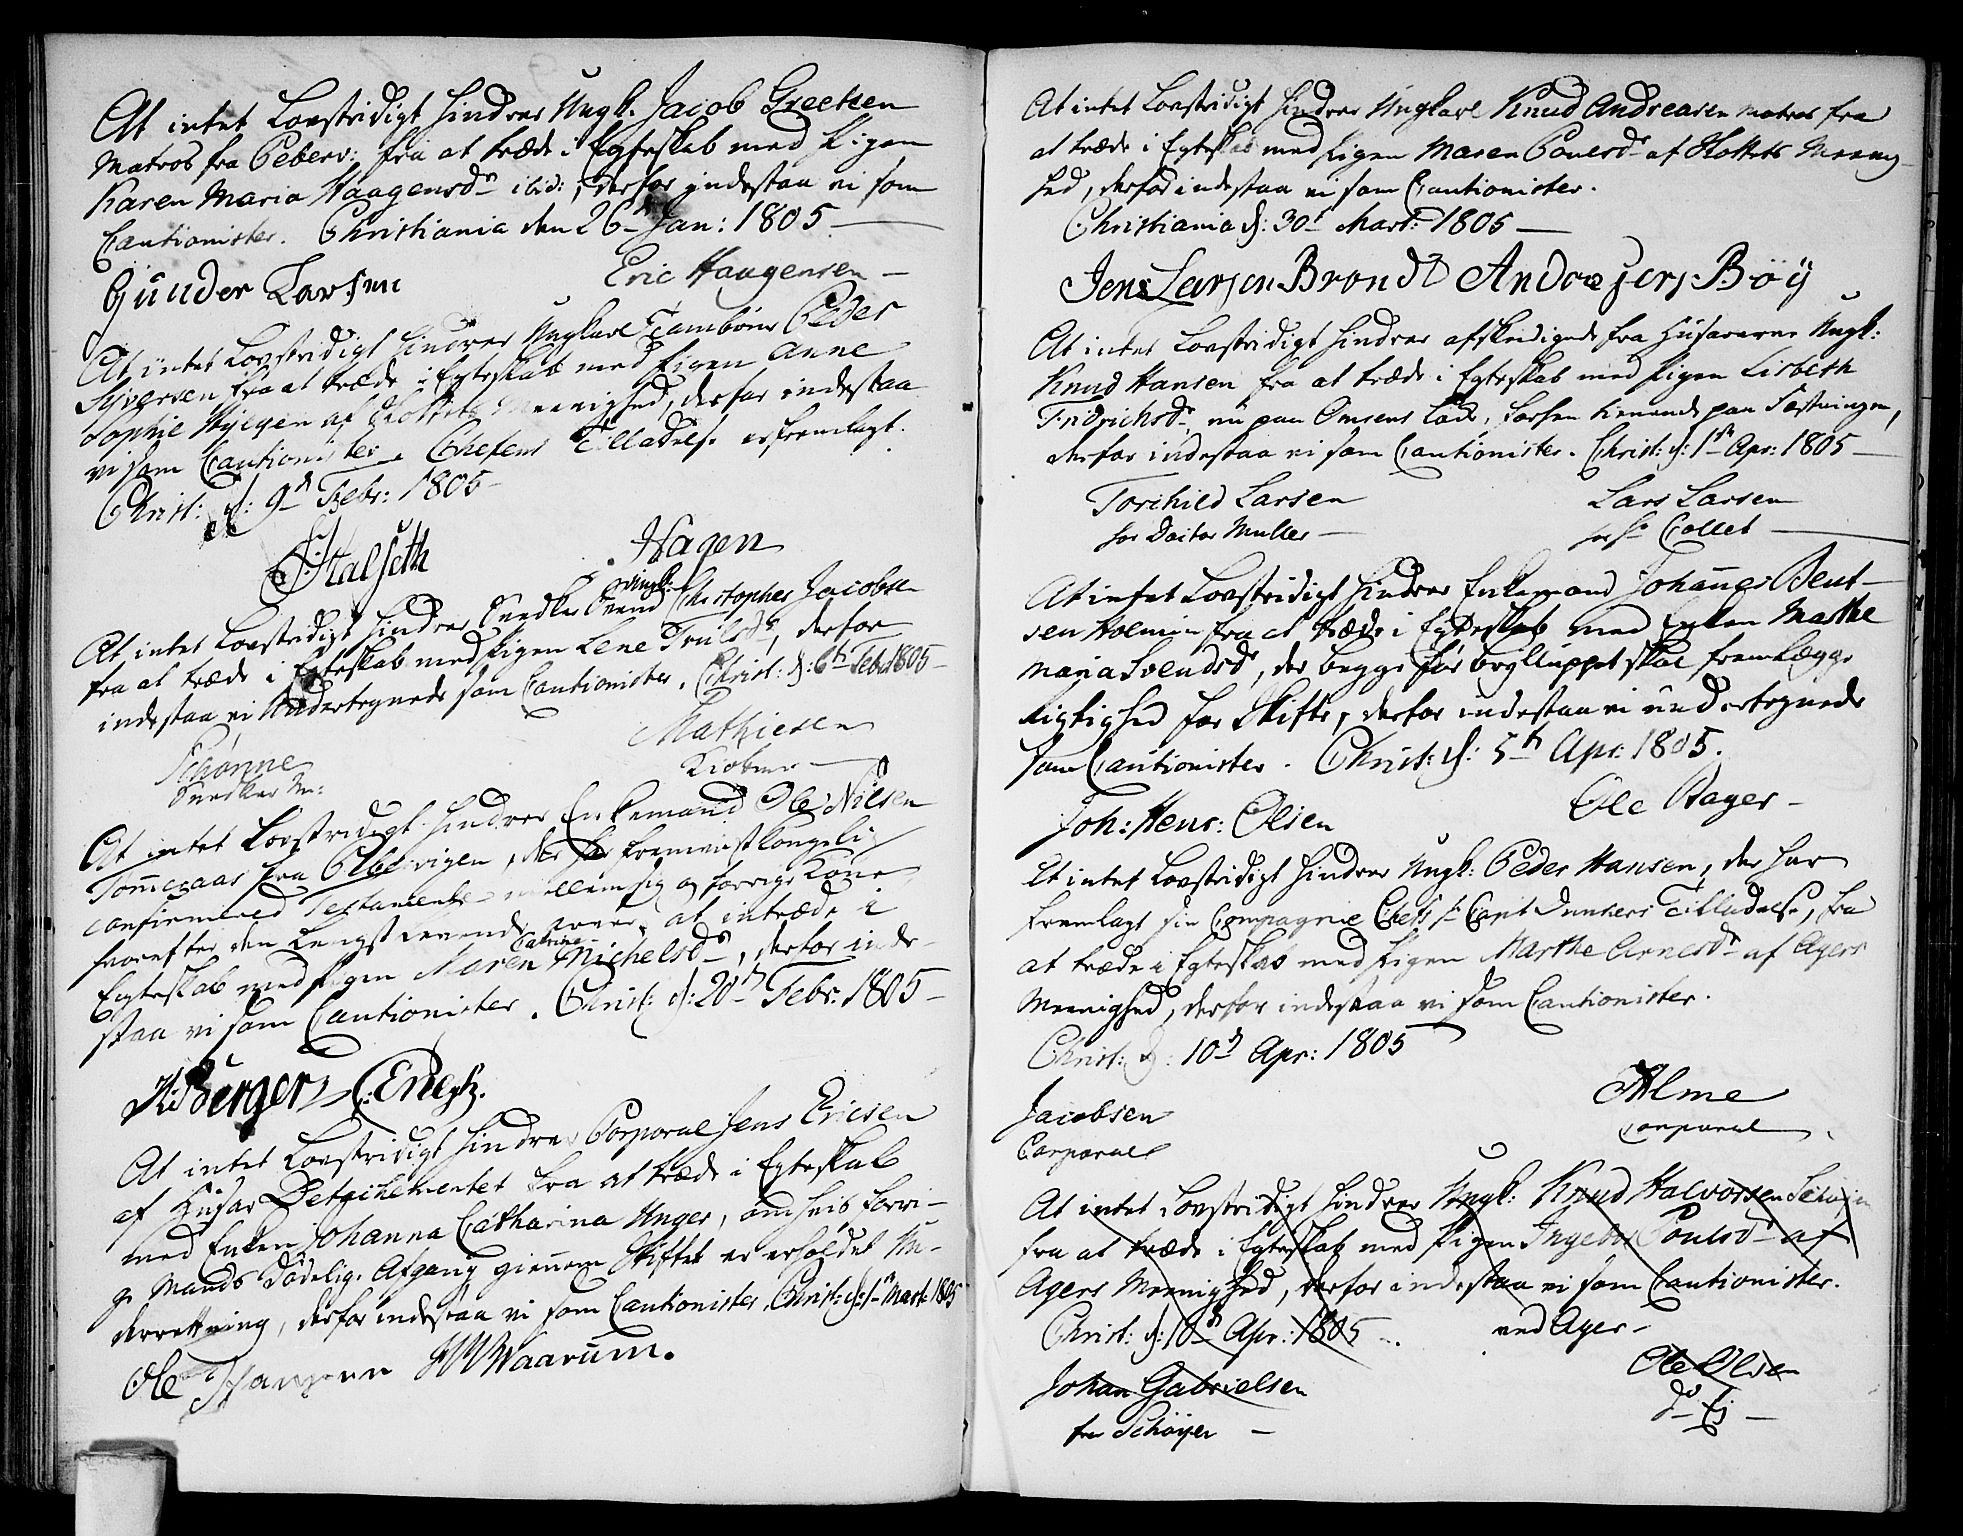 At intet Lovstridigt hindrer Ungk. Jacob Greetsen
Matros fra Peberv: fra at træde i Egteskab med Pigen
Karen Maria Haagensd. ibid:, derfor indestaa vi som
Cautionister. Christiania den 26 Jan: 1805
Gunder Larsen Eric Haagensen
At intet Lovstridigt hindrer Ungkarl Tambour Peder
Syversen fra at træde i Egteskab med Pigen Anne
Sophie af Slottets Meenighed, derfor indestaa
vi som Cautionister. Chefens Tilladelse er fremlagt.
Christ: d: 9 Febr: 1805
Halseth Hagen
At intet Lovstridigt hindrer Snedker Svend Ungk: Christopher Jacobsen
fra at træde i Egteskab med Pigen Lene Trulsd., derfor
indestaa vi Undertegnede som Cautionister. Christ: d: 6t Feb: 1805
Schønne Mathiesen
Snedker M:
At intet Lovstridigt hindrer Enkemand Ole Nilsen
Tømmeraas fra Pibervigen, der har fremviist kongeli
confirmered Testamente mellem sig og forrige Kone
hvorefter den Længst Levende, at indtræde i
Egteskab med Pigen Maren Catrine Michelsd., derfor inde-
staa vi som Cautionister. Christ: d: 20 Febr: 1805
Berger
At intet Lovstridigt hindrer Corporal Jens Ericsen
af Husar Detachementet fra at træde i Egteskab
med Enken Johanna Catharina Unger, om hvis forri-
ge Mands Dødelig. Afgang gienem Skiftet er erholdet Un-
derretning, derfor indestaa vi som Cautionister. Christ: d: 1 Mart: 1805
Ole Hansen Waarum.
At intet Lovstridigt hindrer Ungkarl Knud Andreasen Matros fra
at træde i Egteskab med Pigen Maren Povelsd. af Slottets Meenig
hed, derfor indestaa vi som Cautionister.
Christiania d: 30 Mart: 1805
Jens Larsen Brondt Andræ Jers Bøÿ
At intet Lovstridigt hindrer afskeedigede fra Husarerne Ungk:
Knud Hansen fra at træde i Egteskab med Pigen Lisbeth
Fridrichsd., nu paa Omsens Løkke, forhen tienende paa Fæstningen,
derfor indestaa vi som Cautionister. Christ: d: 1 Apr: 1805
Torchild Larsen Lars Larsen
for Doctor Muller for Hr Collet
At intet Lovstridigt hindrer Enkemand Johannes Bent-
sen Holmen fra at træde i Egteskab med Enken Marthe
Maria Svendsd, der begge før brylluppet skal fremlægge
rigtighed for Skifte, derfor indestaa vi undertegnede
som Cautionister. Christ: d: 5t Apr: 1805.
Joh: Henr: Olsen Ole Bager
At intet Lovstridigt hindrer Ungk: Peder Hansen, der har
fremlagt sin Compagnie Chefs Hr Capt Dunkers Tilladelse, fra
at træde i Egteskab med Pigen Marthe Arnesd. af Agers
Meenighed, derfor indestaa vi som Cautionister.
Christ: d: 10 Apr: 1805
Jacobsen Alme
Corporal Corporal
At intet Lovstridigt hindrer Ungk: Knud Halvorsen
fra at træde i Egteskab med Pigen Ingebor Poulsd. af
Agers Meenighed, derfor indestaa vi som Cautionister.
Christ: d: 10 Apr: 1805 ved Ager
Johan Gabrielsen Ole Olsen
fra Schøyen